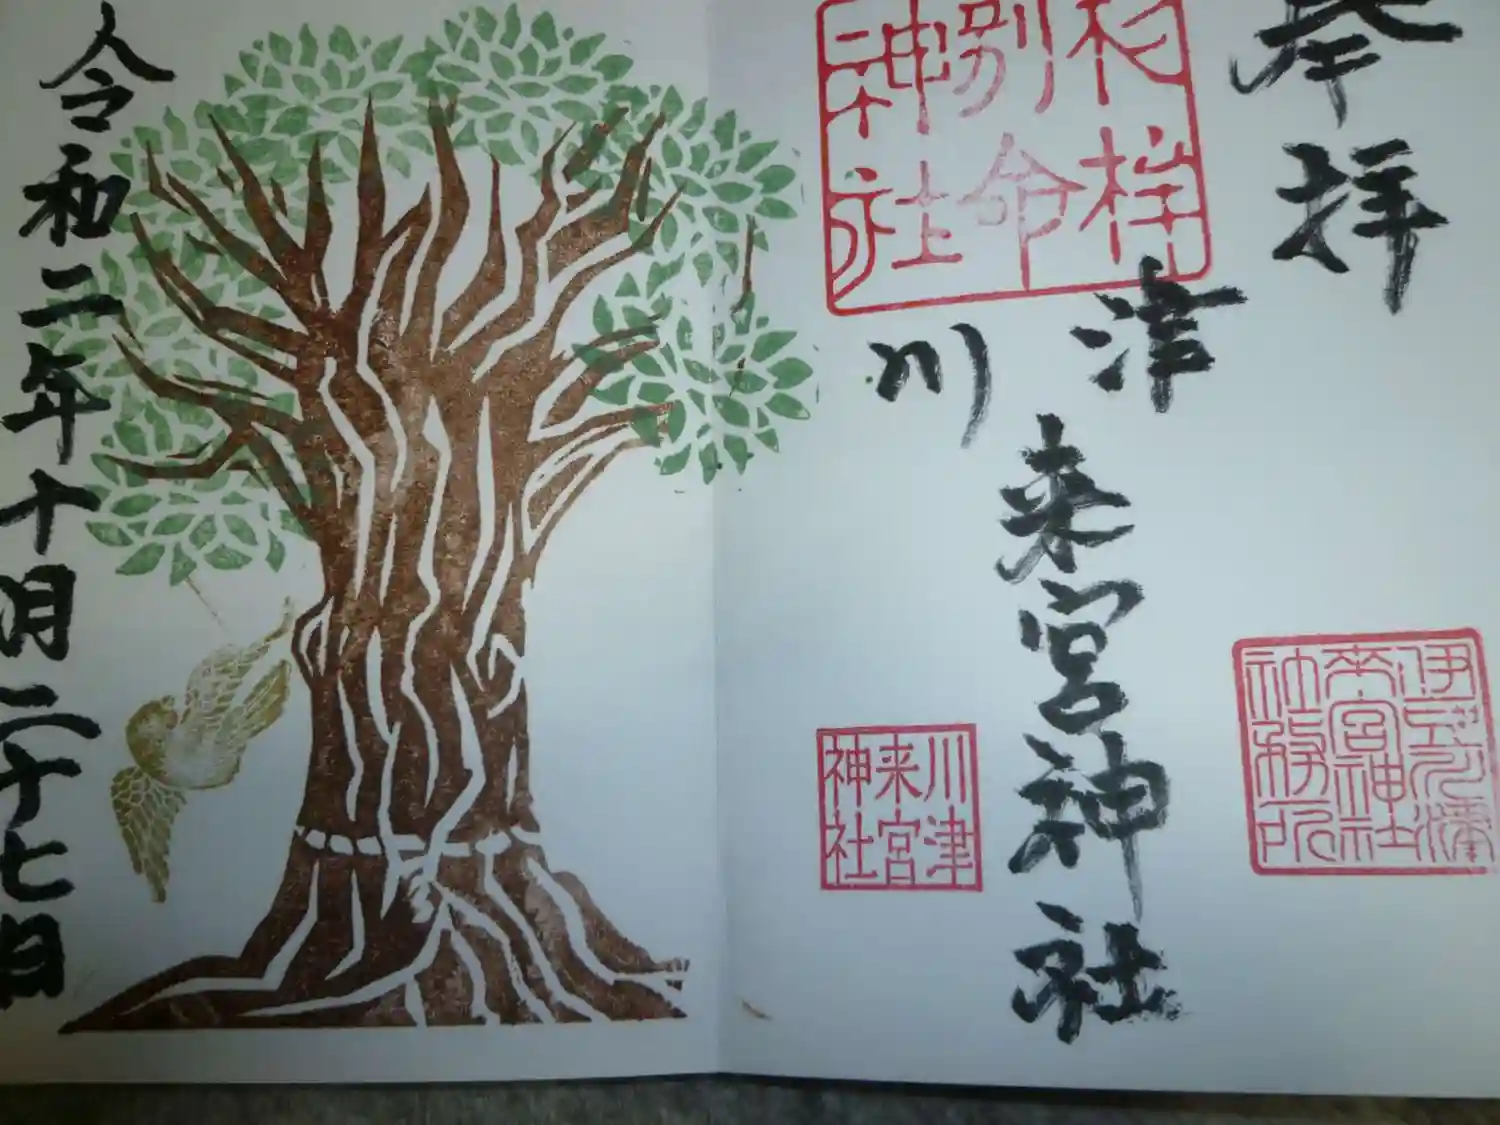 奉拝
杉桙
別命
神社
川津
来宮神社
川津
来宮
神社
来宮神社
社務所
令和二年十月二十七日